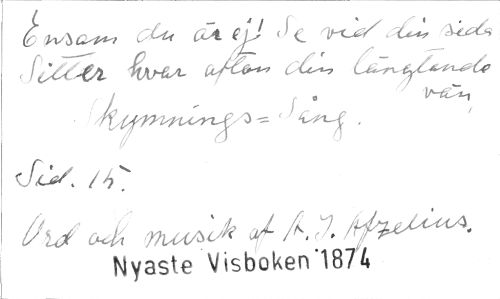 Ensam du är ej! Se vid din sida
Sitter hvar afton din längtande
vän,
Skymnings=Sång.
Sid. 15.
Ord och musik af A. I. Afzelius.
Nyaste Visboken 1874